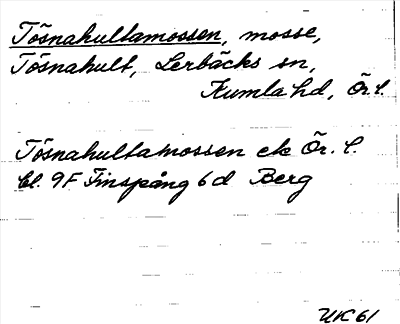 Tösnahultamossen, mosse,
Tösnahult, Lerbäcks sn,
Kumla hd, Ör. l.
Tösnahultamossen ek Ör. l.
bl. 9F Finspång 6 d Berg
UK 61